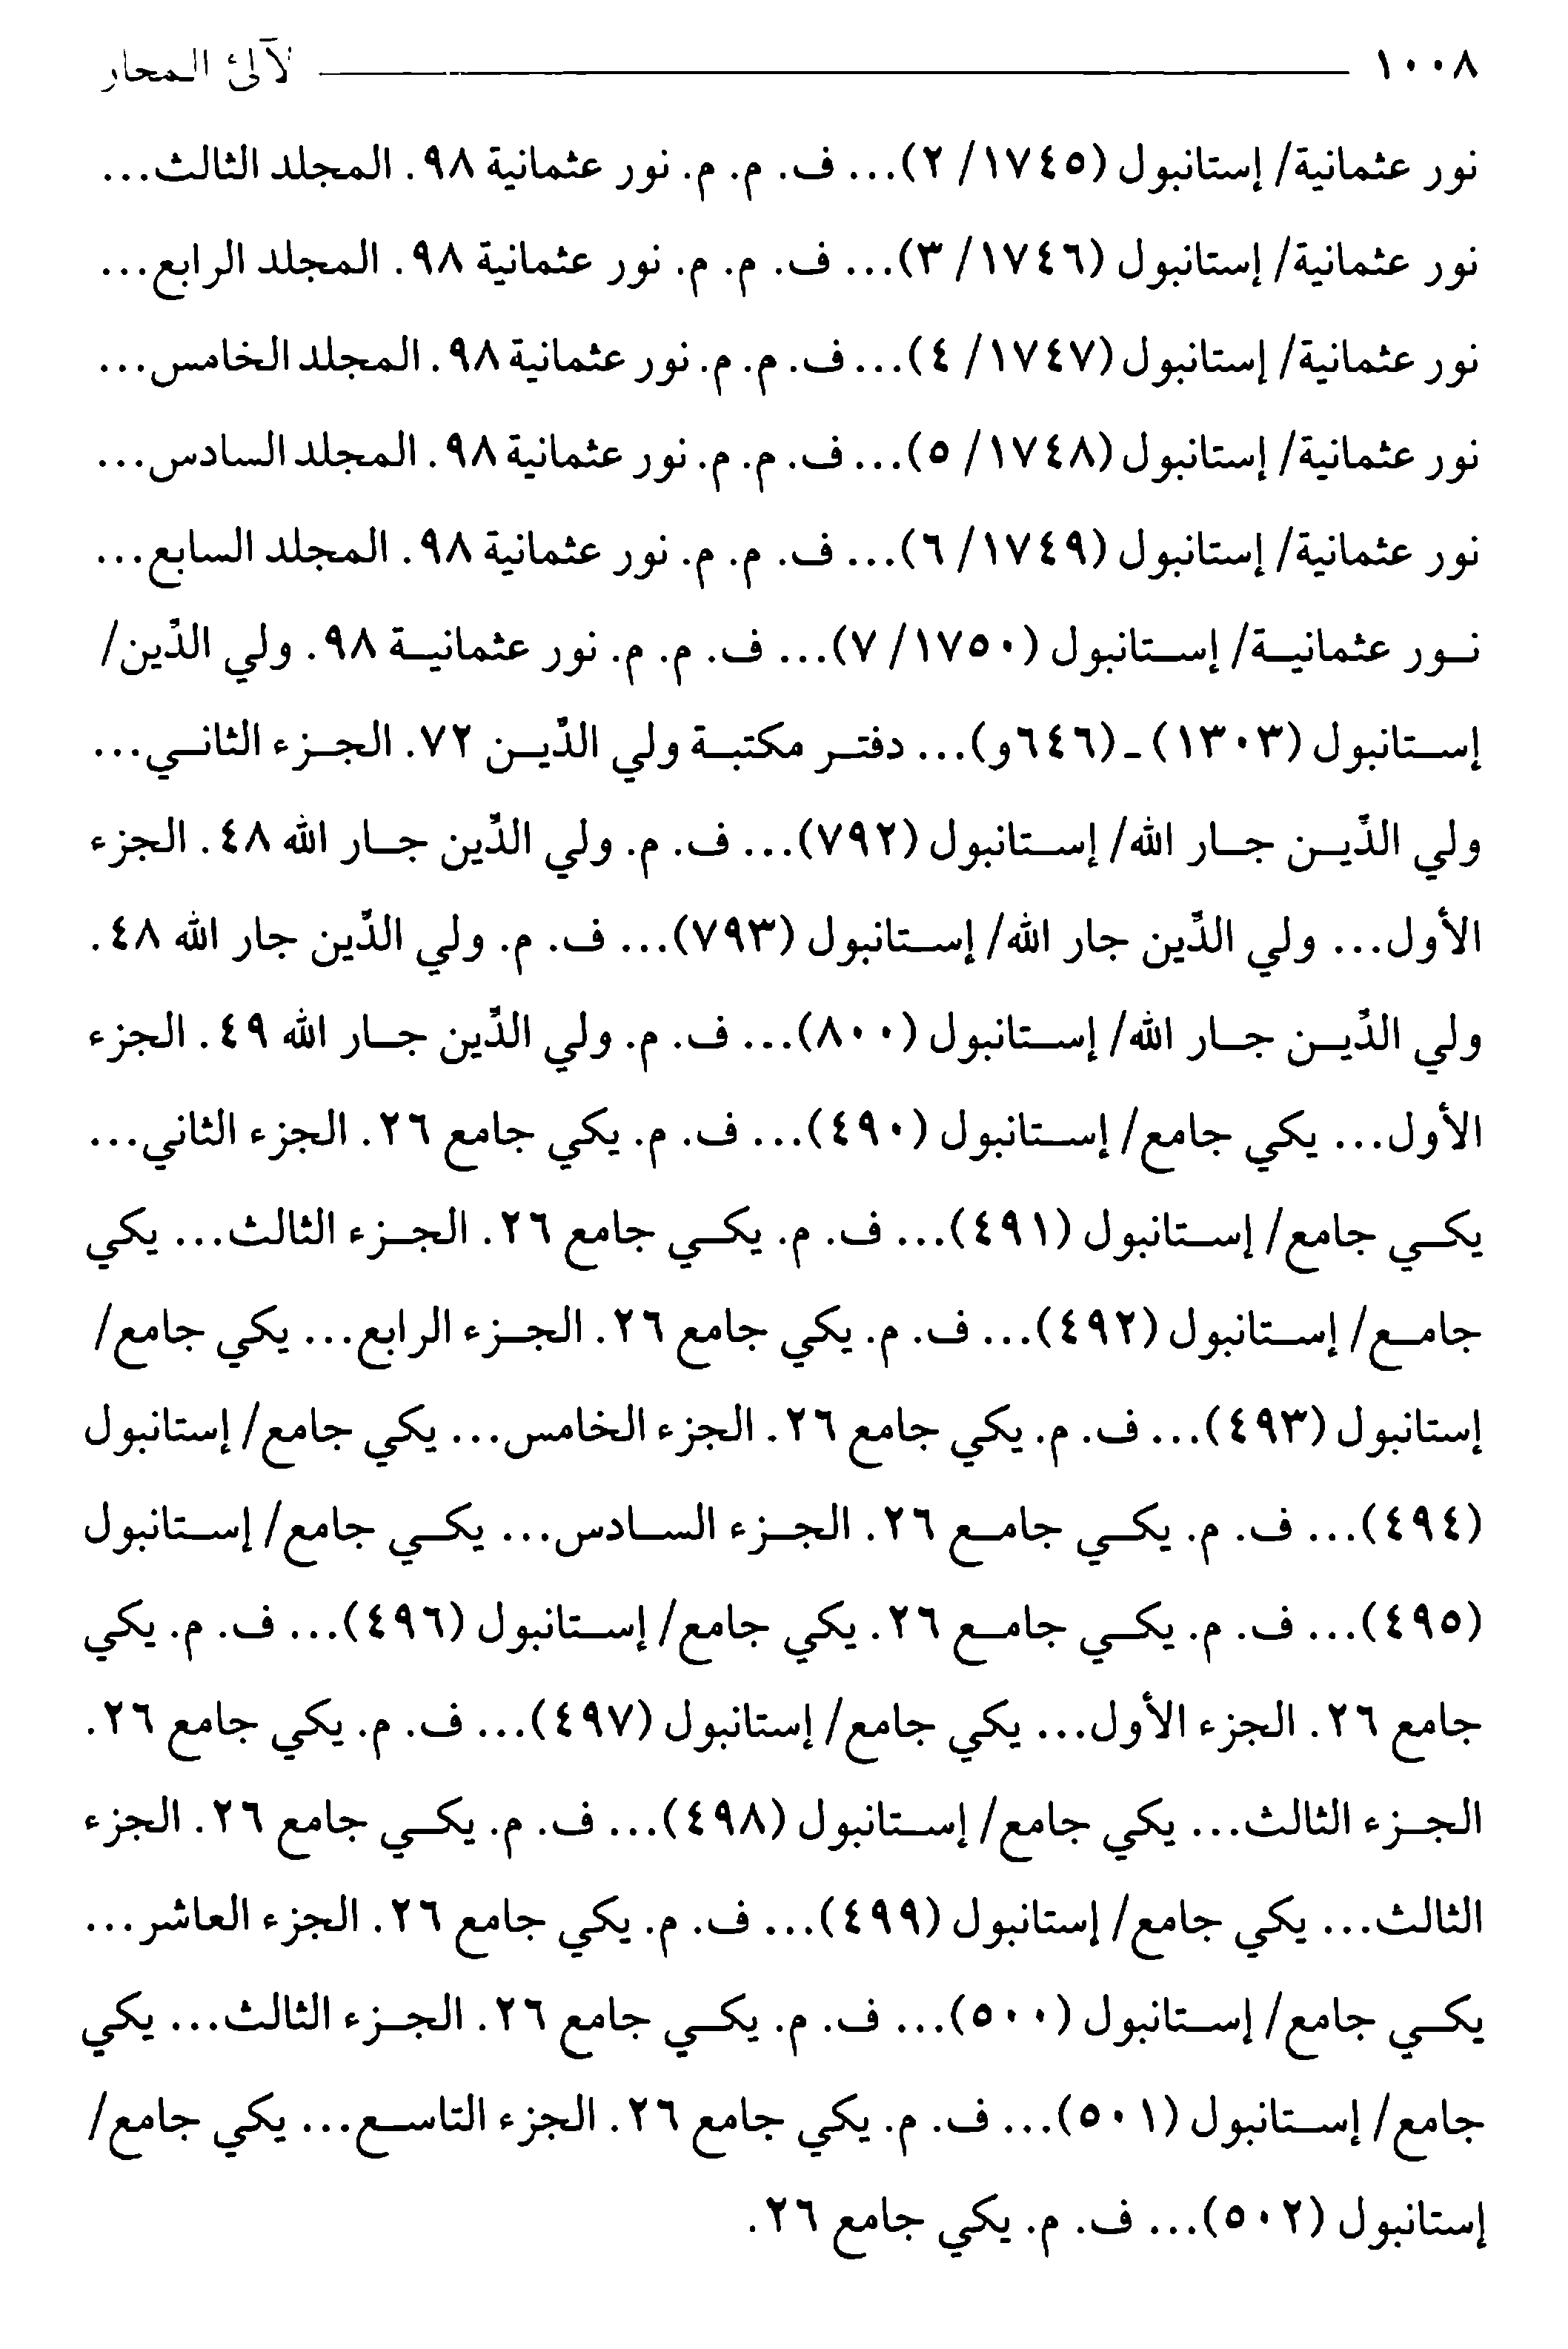 ١٠٠٨ لآلئ المحار
نور عثمانية/ إستانبول (١٧٤٥/ ٢)... ف. م. م. نور عثمانية ٩٨. المجلد الثالث...
نور عثمانية/ إستانبول (١٧٤٦/ ٣)... ف. م. م. نور عثمانية ٩٨. المجلد الرابع...
نور عثمانية/ إستانبول (١٧٤٧/ ٤)... ف. م. م. نور عثمانية ٩٨. المجلد الخامس...
نور عثمانية/ إستانبول (١٧٤٨/ ٥)... ف. م. م. نور عثمانية ٩٨. المجلد السادس...
نور عثمانية/ إستانبول (١٧٤٩/ ٦)... ف. م. م. نور عثمانية ٩٨. المجلد السابع...
نور عثمانية/ إستانبول (١٧٥٠/ ٧)... ف. م. م. نور عثمانية ٩٨. ولي الدِّين/
إستانبول (١٣٠٣) ـ (٦٤٦و)... دفتر مكتبة ولي الدِّين ٧٢. الجزء الثاني...
ولي الدِّين جار الله/ إستانبول (٧٩٢)... ف. م. ولي الدِّين جار الله ٤٨. الجزء
الأول... ولي الدِّين جار الله/ إستانبول (٧٩٣)... ف. م. ولي الدِّين جار الله ٤٨.
ولي الدِّين جار الله/ إستانبول (٨٠٠)... ف. م. ولي الدِّين جار الله ٤٩. الجزء
الأول... يكي جامع/ إستانبول (٤٩٠)... ف. م. يكي جامع ٢٦. الجزء الثاني...
يكي جامع/ إستانبول (٤٩١)... ف. م. يكي جامع ٢٦. الجزء الثالث... يكي
جامع/ إستانبول (٤٩٢)... ف. م. يكي جامع ٢٦. الجزء الرابع... يكي جامع/
إستانبول (٤٩٣)... ف. م. يكي جامع ٢٦. الجزء الخامس... يكي جامع/ إستانبول
(٤٩٤)... ف. م. يكي جامع ٢٦. الجزء السادس... يكي جامع/ إستانبول
(٤٩٥)... ف. م. يكي جامع ٢٦. يكي جامع/ إستانبول (٤٩٦)... ف. م. يكي
جامع ٢٦. الجزء الأول... يكي جامع/ إستانبول (٤٩٧)... ف. م. يكي جامع ٢٦.
الجزء الثالث... يكي جامع/ إستانبول (٤٩٨)... ف. م. يكي جامع ٢٦. الجزء
الثالث... يكي جامع/ إستانبول (٤٩٩)... ف. م. يكي جامع ٢٦. الجزء العاشر...
يكي جامع/ إستانبول (٥٠٠)... ف. م. يكي جامع ٢٦. الجزء الثالث... يكي
جامع/ إستانبول (٥٠١)... ف. م. يكي جامع ٢٦. الجزء التاسع... يكي جامع/
إستانبول (٥٠٢)... ف. م. يكي جامع ٢٦.